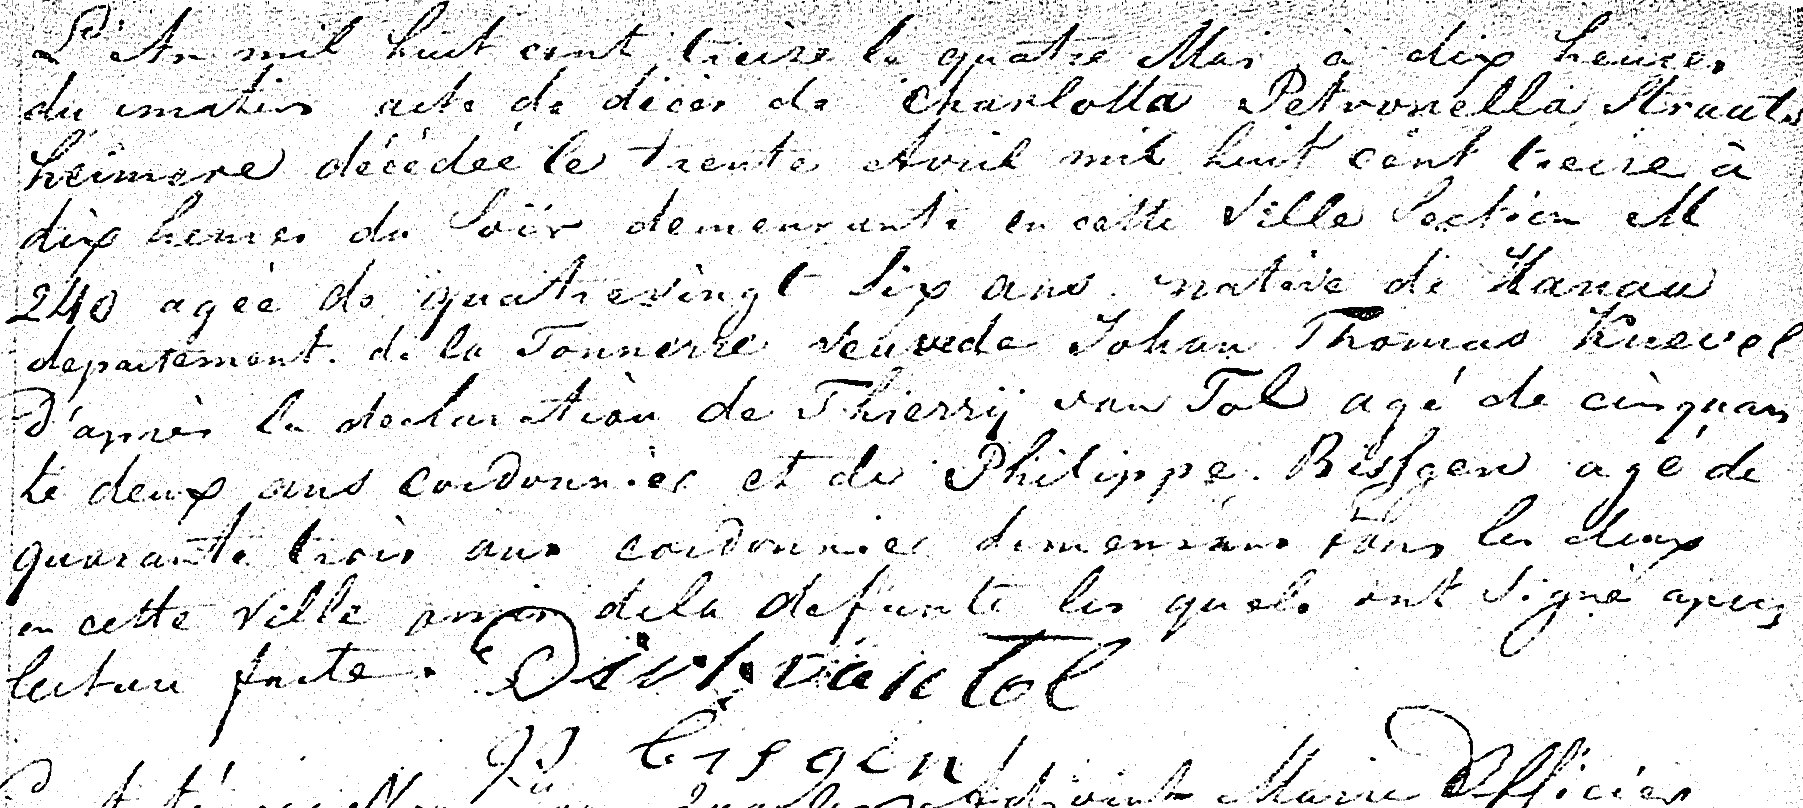 L'An mil huit cent treize le quatre Mai à dix heures
du matin acte de décès de Charlotta Petronella Strauts
heimere décédée le trente Avril mil huit cent treize à
dix heures du Soir demeurante en cette Ville Section M
240 agée de quatrevingt Six ans native de Hanau
departement de la Tonnerre veuve de Johan Thomas Knevel
D'après la declaration de Thierrij van Tol agé de cinquan
te deux ans cordonnier et de Philippe Bisfgen agé de
quarante trois ans cordonnier demeurans tous les deux
en cette Ville amis de la defunte les quels ont Signé apres
lecture faite. Dirk van Tol
Bisgen
Adjoint Maire Officier